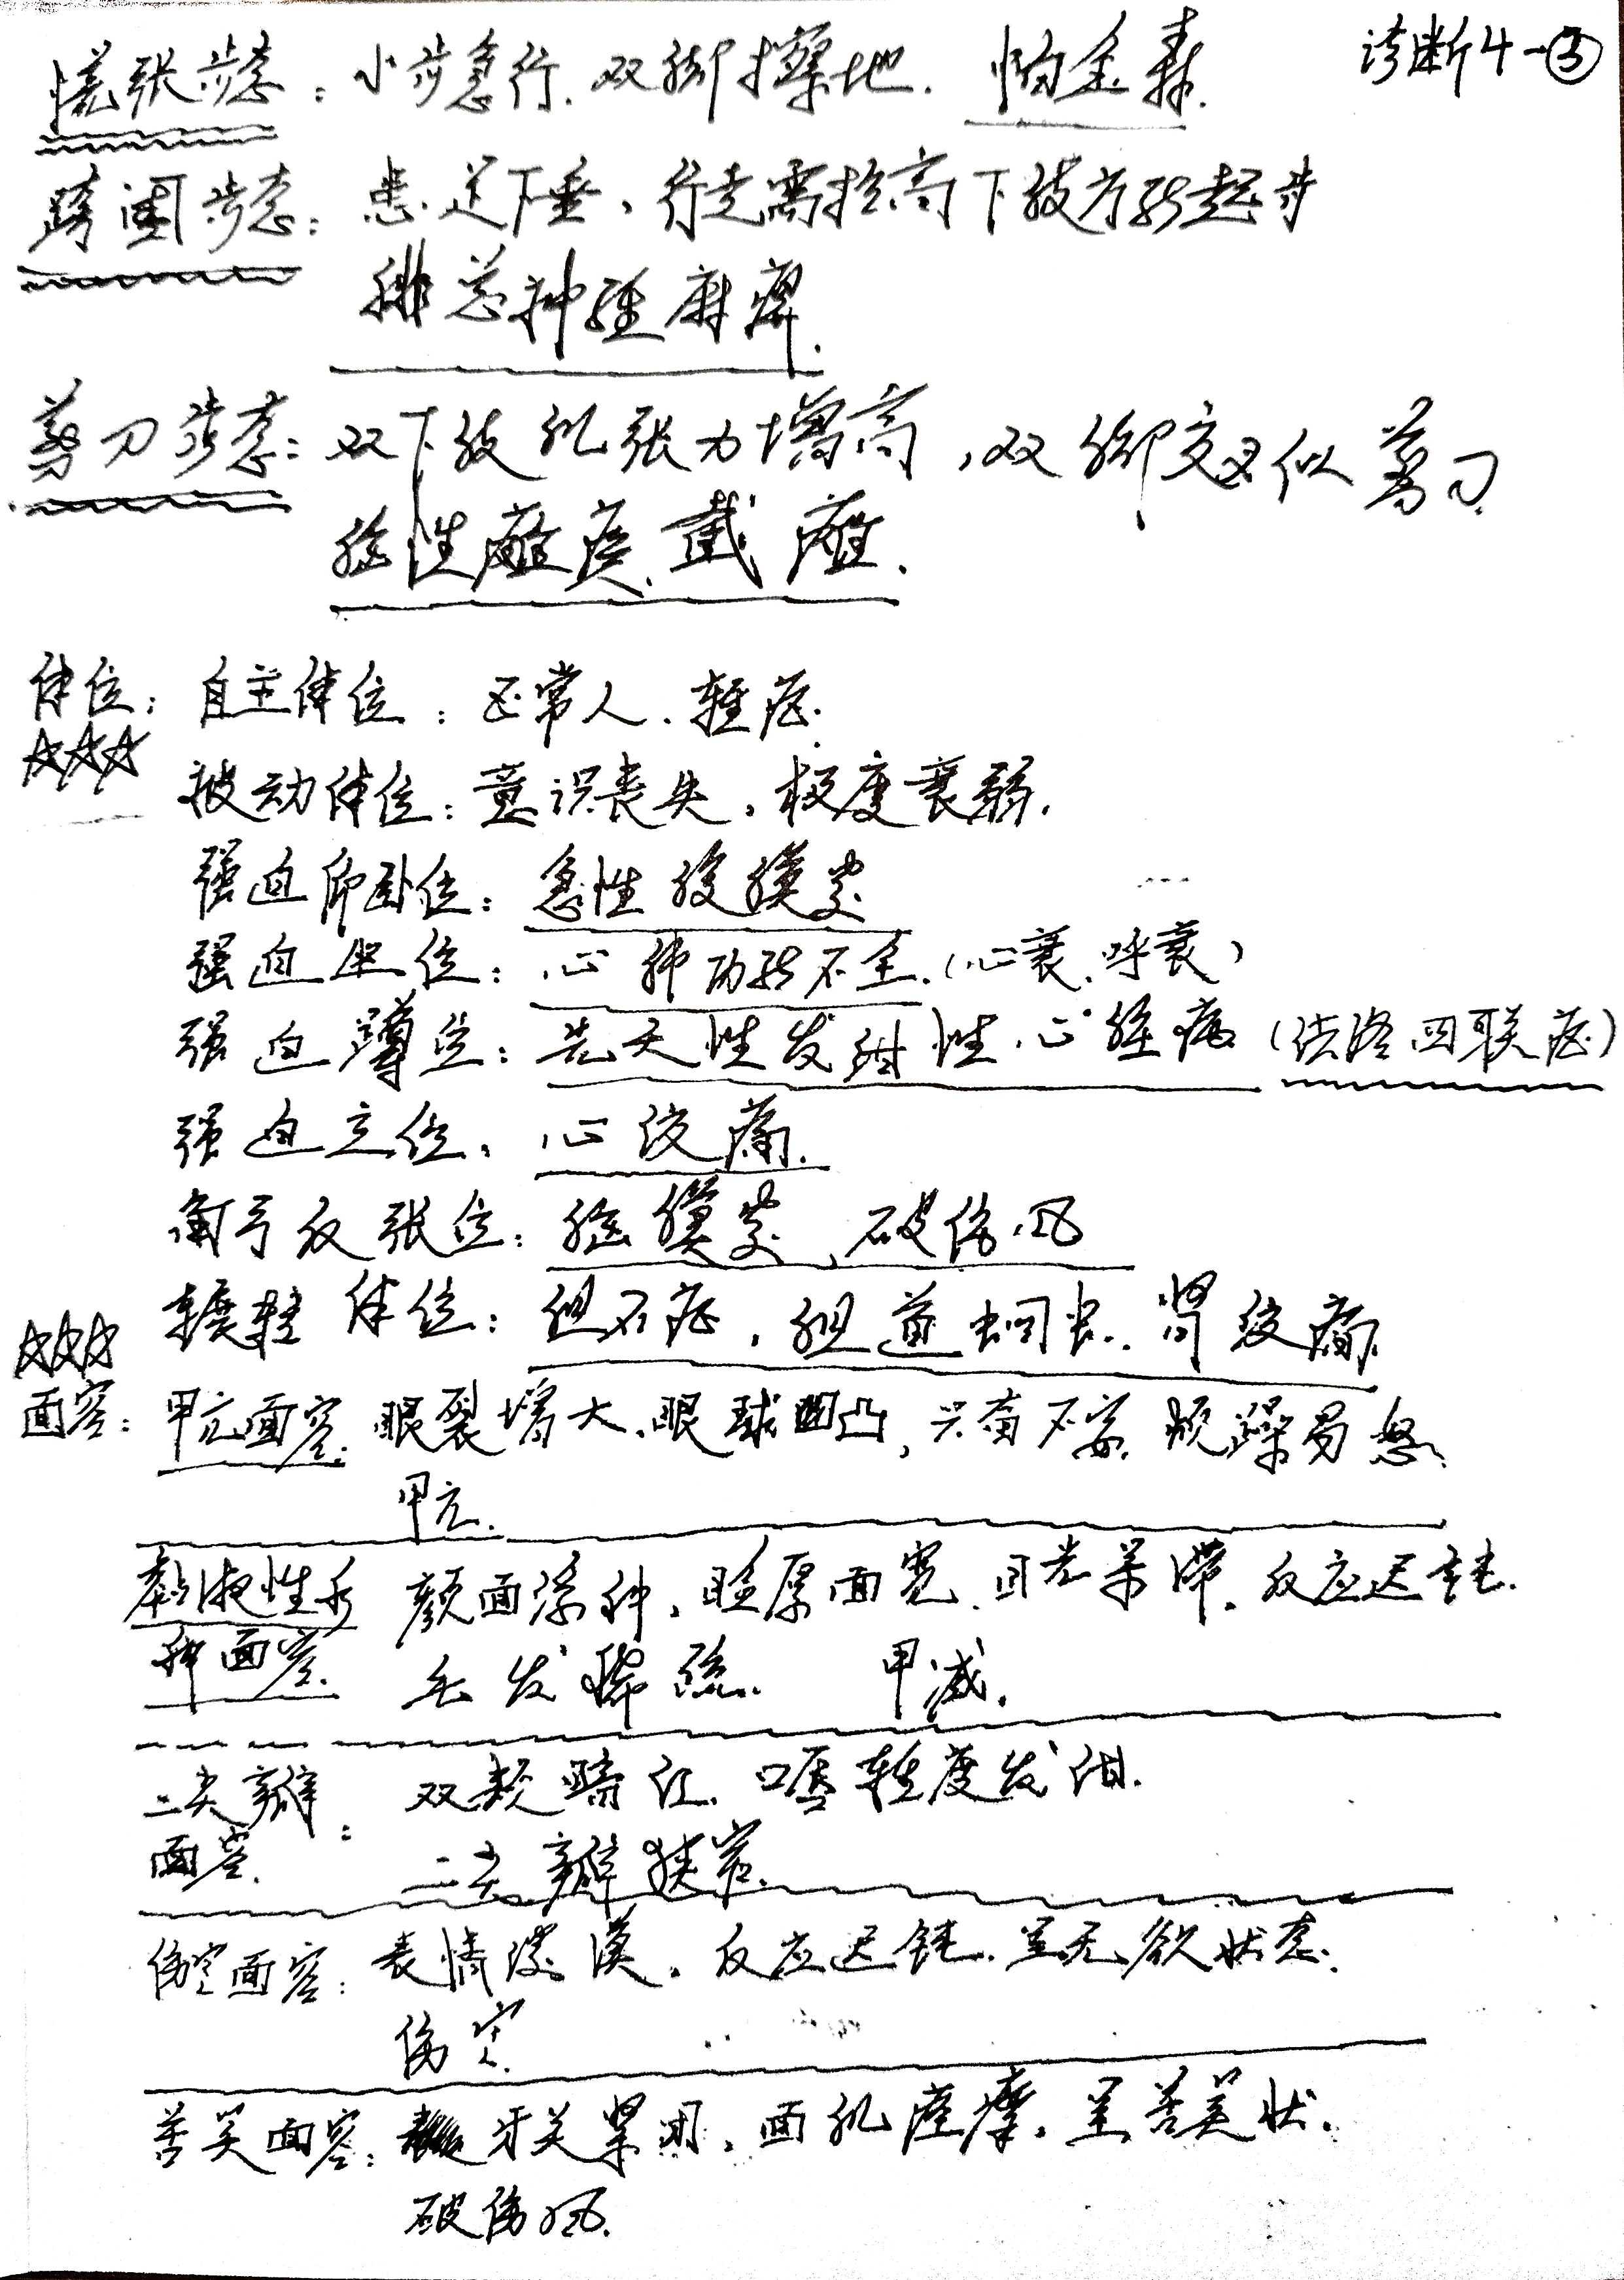 诊断4-③
慌张步态：小步急行、双脚擦地. 帕金森.
跨阈步态：患足下垂，行走需抬高下肢方能起步
腓总神经麻痹.
剪刀步态：双下肢肌张力增高，双脚交叉似剪刀
脑性瘫痪、截瘫.
体位：自主体位：正常人、轻症.
☆☆☆
被动体位：意识丧失、极度衰弱.
强迫仰卧位：急性腹膜炎
强迫坐位：心肺功能不全.（心衰、呼衰）
强迫蹲位：先天性发绀性心脏病（法洛四联症）
强迫立位：心绞痛.
角弓反张位：脑膜炎、破伤风
辗转体位：胆石症，胆道蛔虫、肾绞痛
☆☆☆
面容：甲亢面容：眼裂增大、眼球凸，兴奋不安、烦躁易怒
甲亢.
黏液性水 颜面浮肿、睑厚面宽、目光呆滞、反应迟钝.
肿面容. 毛发稀疏. 甲减.
二尖瓣：双颊暗红、口唇轻度发绀.
面容. 二尖瓣狭窄.
伤寒面容：表情淡漠、反应迟钝、呈无欲状态.
伤寒.
苦笑面容：牙关紧闭、面肌痉挛、呈苦笑状.
破伤风.